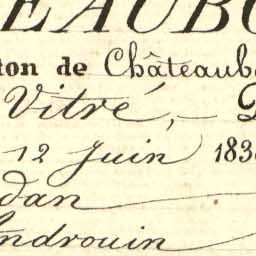 EAUBO
ton de Châteaub
Vitré, -
12 Juin 183
dan
ndrouin